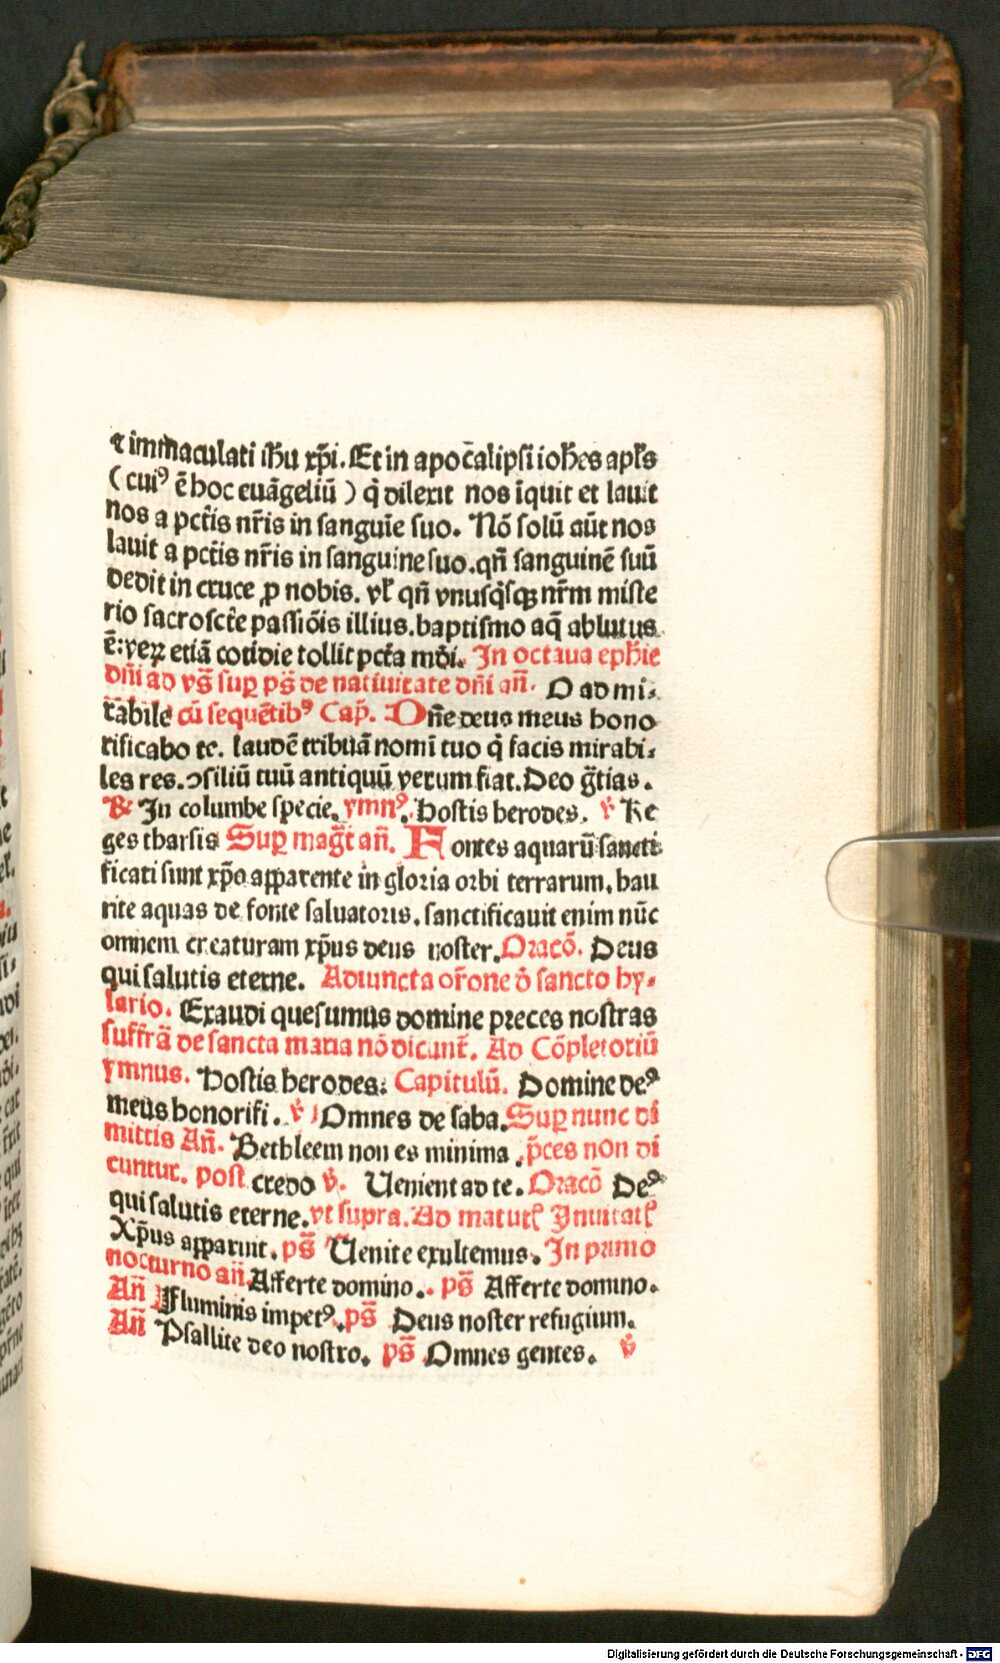 ⁊ immaculati ihu xp̄i. Et in apoc̄alipsi ioh̄es apl̄s
(cuiꝰ ē hoc euāgeliū) q̇ dilexit nos īquit et lauit
nos a pct̄is nr̄is in sanguīe suo. Nō solū aūt nos
lauit a pct̄is nr̄is in sanguine suo. qn̄ sanguinē suū
dedit in cruce ꝓ nobis. vl̄ qn̄ vnusq̇sqꝫ nr̄m miste
rio sacroscte passiōis illius. baptismo aq̄ ablutus
ē: veꝝ etiā cotidie tollit pct̄a mūdi. In octaua eph̄ie
dn̄i ad vs̄ suꝑ ps̄ de natiuitate dn̄i an̄. O admi⸗
rabile cū sequētibꝰ Cap̄. Dn̄e deus meus hono
rificabo te. laudē tribuā nomī tuo q̇ facis mirabi⸗
les res. ꝯsiliū tuū antiquū verum fiat. Deo gr̄tias.
℟ In columbe specie. ymnꝰ. Hostis herodes. ℣ Re
ges tharsis Suꝑ magt̄ an̄. Fontes aquarū sancti
ficati sunt xp̄o apparente in gloria orbi terrarum. hau
rite aquas de fonte saluatoris. sanctificauit enim nūc
omnem creaturam xp̄us deus noster. Oracō. Deus
qui salutis eterne. Adiuncta or̄one d̄ sancto hy⸗
lario. Exaudi quesumus domine preces nostras
suffrā de sancta maria nō dicunt̄. Ad Cōpletoriū
ymnus. Hostis herodes: Capitulū. Domine deꝰ
meus honorifi. ℣ Omnes de saba. Suꝑ nunc di
mittis An̄. Bethleem non es minima. p̄ces non di
cuntur. post credo ℣. Uenient ad te. Oracō Deꝰ
qui salutis eterne. vt supra. Ad matut̄ Inuitat̄
Xp̄us apparuit. ps̄ Uenite exultemus. In primo
nocturno an̄. Afferte domino. ps̄ Afferte domino.
An̄ Fluminis impetꝰ. ps̄ Deus noster refugium.
An̄ Psallite deo nostro. ps̄ Omnes gentes. ℣
Digitalisierung gefördert durch die Deutsche Forschungsgemeinschaft - DFG